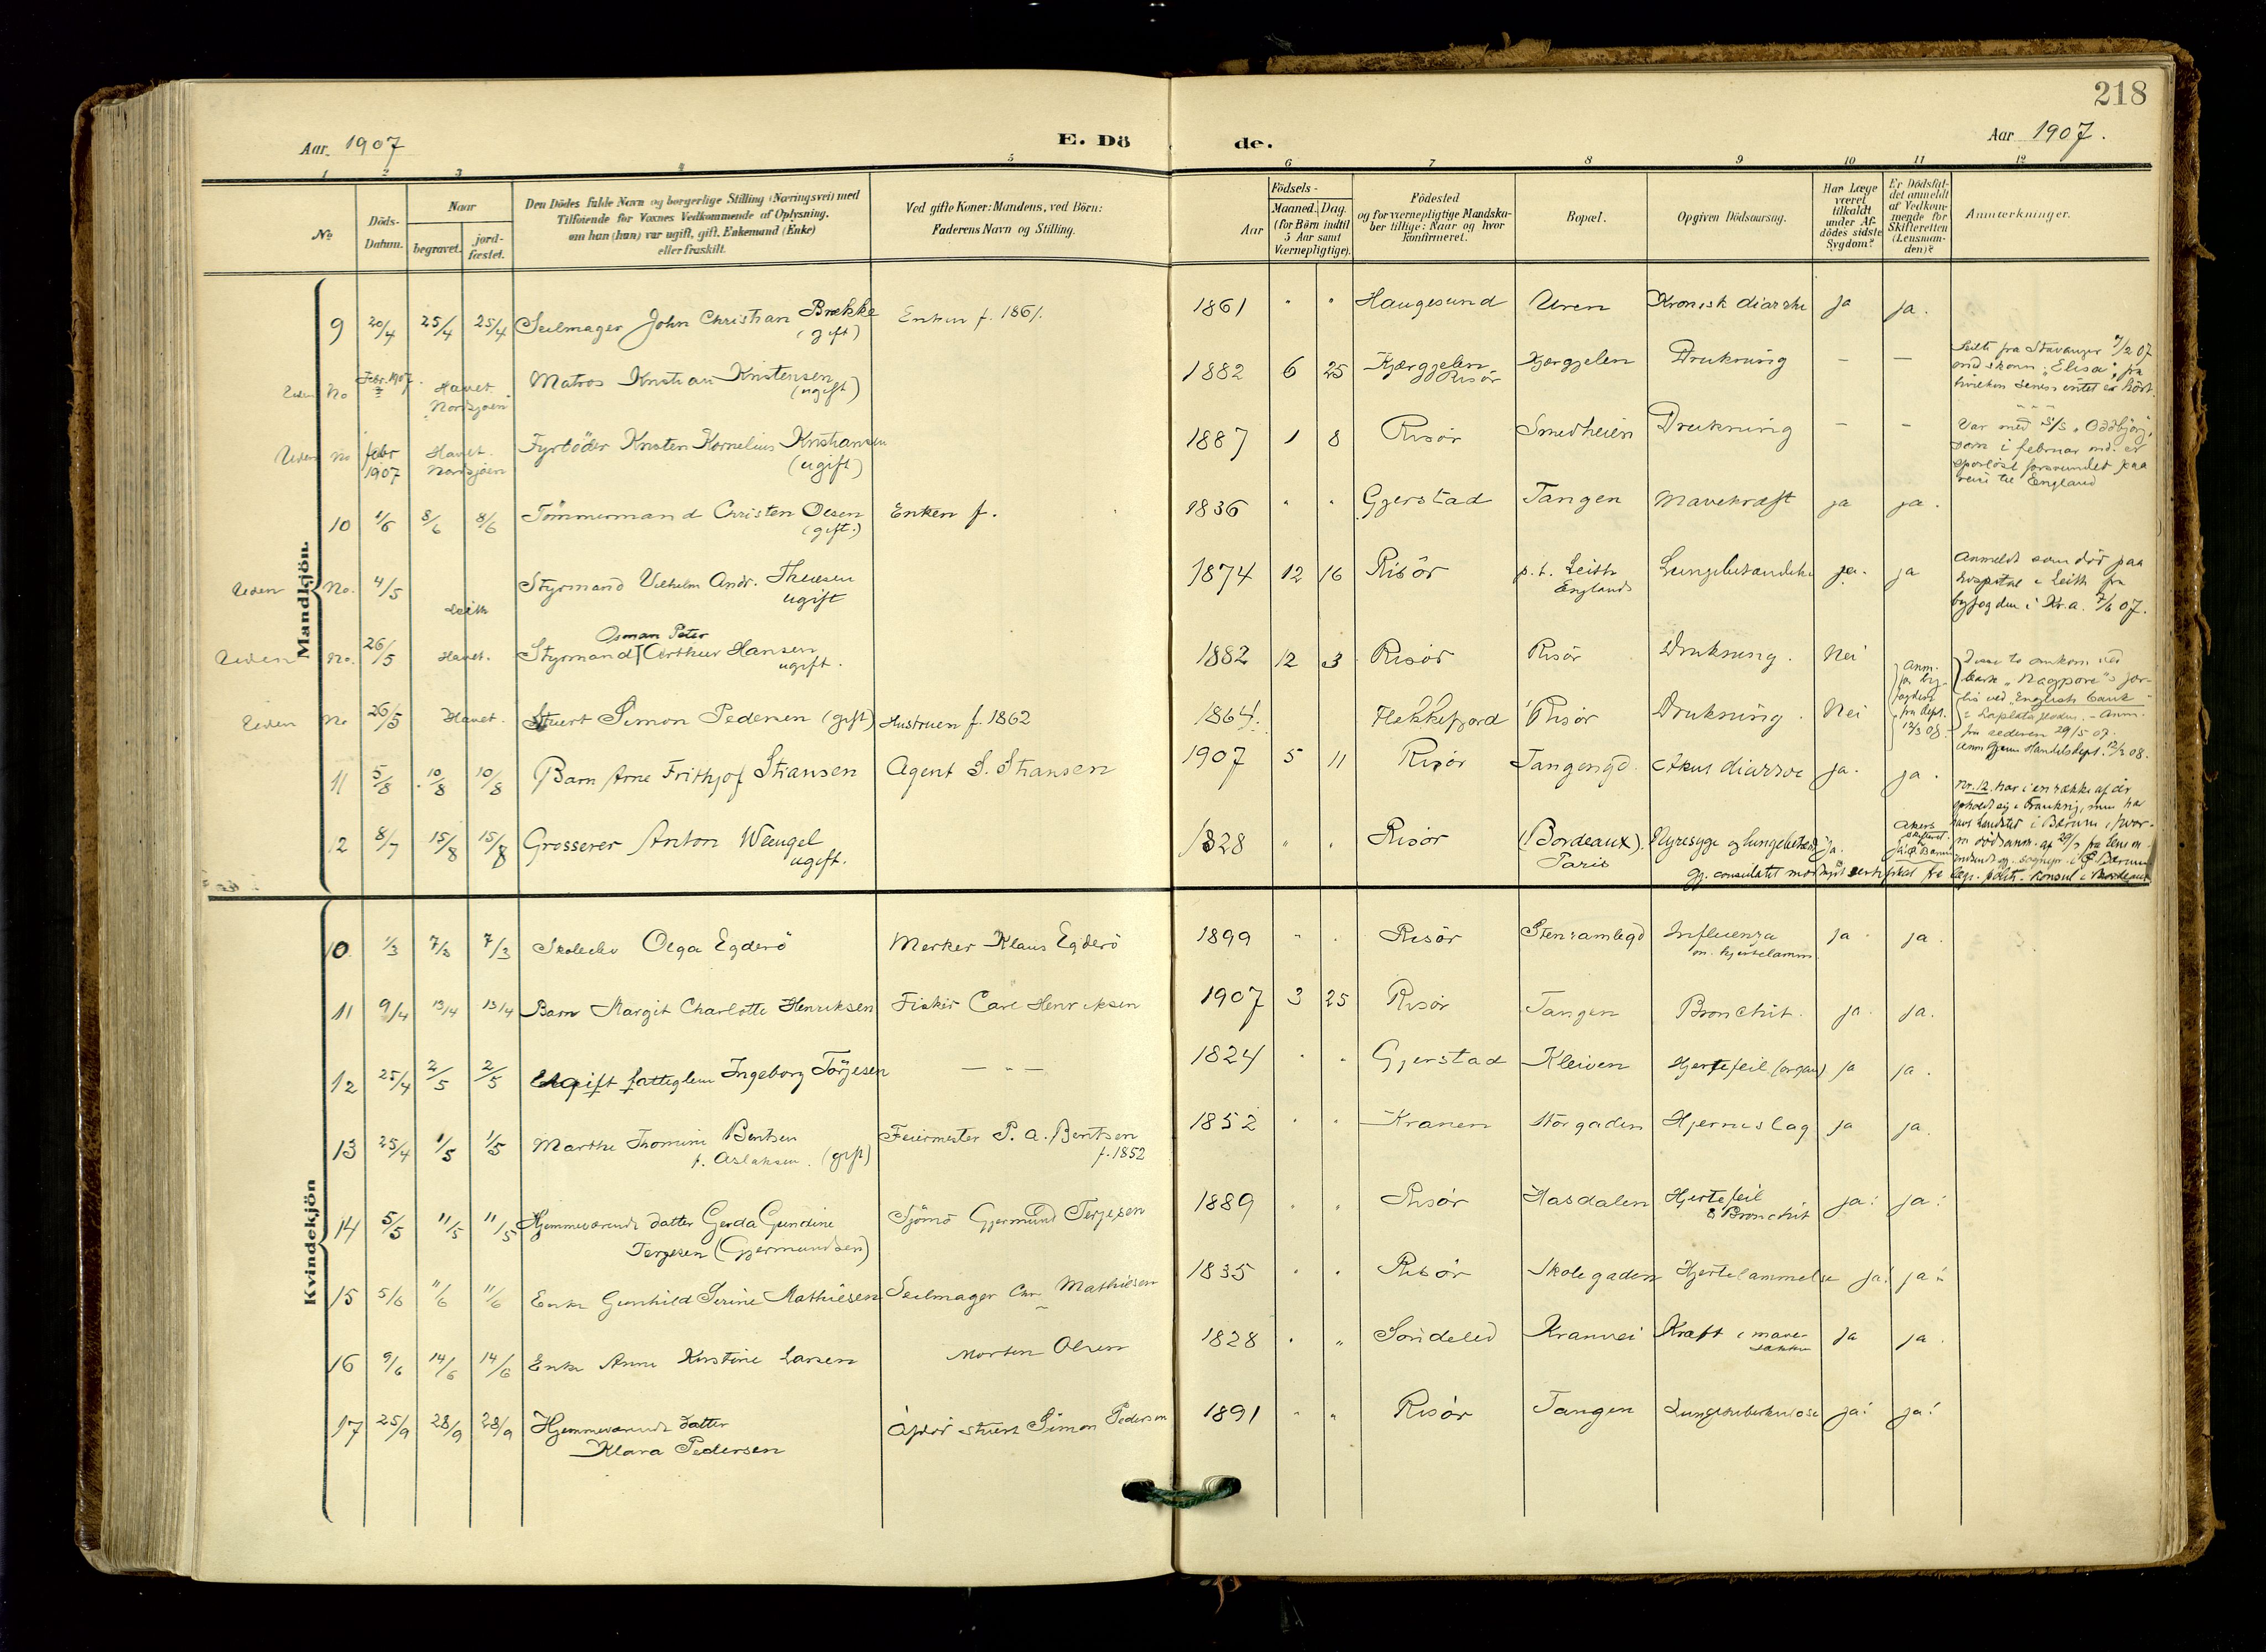 218
Aar 1907
E. Dö
de.
Aar 1907.
1 2 3 4 5 6 7 8 9 10 11 12
№
Döds-
Datum.
Naar
begravet.
jord-
fæstet.
Den Dödes fulde Navn og borgerlige Stilling (Næringsvei) med
Tilføiende for Voxnes Vedkommende af Oplysning,
om han (hun) var ugift, gift, Enkemand (Enke)
eller fraskilt.
Ved gifte Koner: Mandens, ved Börn:
Faderens Navn og Stilling.
Födsels-
Aar
Maaned. Dag.
(for Börn indtil
5 Aar samt
Værnepligtige).
Födested
og for værnepligtige Mandska-
ber tillige: Naar og hvor
konfirmeret.
Bopæl.
Opgiven Dödsaarsag.
Har Læge
været
tilkaldt
under Af-
dödes sidste
Sygdom?
Er Dödsfal-
det anmeldt
af Vedkom-
mende for
Skifteretten
(Lensman-
den)?
Anmærkninger.
Mandkjön.
9 20/4 25/4 25/4 Seilmager John Christian Brekke (gift) Enken f. 1861. 1861 " " Haugesund Uren Kronisk diarrhe ja ja.
Uden No Febr. 1907. Havet. Nordsjøen Matros Kristian Kristensen (ugift) 1882 6 25 Kjærggjelen Risör Kjærggjelen Drukning — —
Seilte fra Stavanger
med skonn. "Elisa", fra
hvilken senere intet er hört.
Uden No febr 1907 Havet. Nordsjöen Fyrböder Knsten Kornelius Kristiansen (ugift) 1887 1 8 Risör Smedheien Drukning — —
Var med S/S "Oddbjörg,
som i februar md. er
sporlöst forsvundet paa
reise til England
10 1/6 8/6 8/6 Tömmermand Christen Olsen (gift.) Enken f. 1836 " " Gjerstad Tangen Mavekræft ja ja.
Uden No. 4/5 Leith Styrmand Vilhelm Andr. Thuesen ugift 1874 12 16 Risör p. t. Leith England Lungebetændelse ja. ja
Anmeldt som död paa
hospital i Leith fra
byfogden i Kr.a. 7/6 07.
Uden No. 26/5 Havet. Osman Peter
Styrmand Arthur Hansen ugift. 1882 12 3 Risör Risör Drukning. Nei
Uden No 26/5 Havet. Stuert Simon Pedersen (gift) Hustruen f. 1862 1864. Flekkefjord Risör Drukning. Nei
Anm.
fra by-
fogden
fra dept.
12/3 08.
Disse to omkom ved
bark "Nagpore"s for-
lis ved "English bank"
i Laplatafloden. - Anm.
fra rederen 29/5 07.
Anm. gjenn Handelsdept. 12/3 08.
11 5/8 10/8 10/8 Barn Arne Frithjof Stiansen Agent S. Stiansen 1907 5 11 Risör Tangengd. Akut diarroe ja. ja.
12 8/7 15/8 15/8 Grosserer Anton Wengel ugift. 1828 " " Risör (Bordeaux). Paris Nyresyge og lungebetæn ja.
Nr. 12. har i en række af år
opholdt sig i Frankrig, men har
havt landsted i Bærum, hvor-
Kvindekjön
10 1/3 7/3 7/3 Skoleelev Olga Egderö Merker Klaus Egderö 1899 " " Risör Stensamlegd Influenza m. hjertelamm. ja ja.
11 9/4 13/4 13/4 Barn Margit Charlotte Henriksen Fisker Carl Henriksen 1907 3 25 Risör Tangen Bronchit. ja. ja.
12 25/4 2/5 2/5 Ugift fattiglem Ingeborg Törjesen — " — 1824 " " Gjerstad Kleiven Hjertefeil (organ) ja ja.
13 25/4 1/5 1/5 Marthe Thomine Bentsen f. Aslaksen. (gift) Feiermester P. A. Bentsen f. 1852 1852 " " Kranen Storgaden Hjerneslag ja ja.
14 5/5 11/5 11/5 Hjemmeværende datter Gerda Gundine Terjesen (Gjermundsen) Sjömd Gjermund Terjesen 1889 " " Risör Hasdalen Hjertefeil & Bronchit ja. ja.
15 5/6 11/6 11/6 Enke Gunhild Serine Mathiesen Seilmager Chr. Mathiesen 1835 " " Risör Skolegaden Hjertelammelse ja. ja.
16 9/6 14/6 14/6 Enke Anne Kirstine Larsen Morten Olsen 1828 " " Söndeled Kranvei Kræft i mave-sækken ja ja.
17 25/9 28/9 28/9 Hjemmeværende datter
Klara Pedersen Afdöd stuert Simon Pedersen 1891 " " Risör Tangen Lungetuberkulose ja. ja.